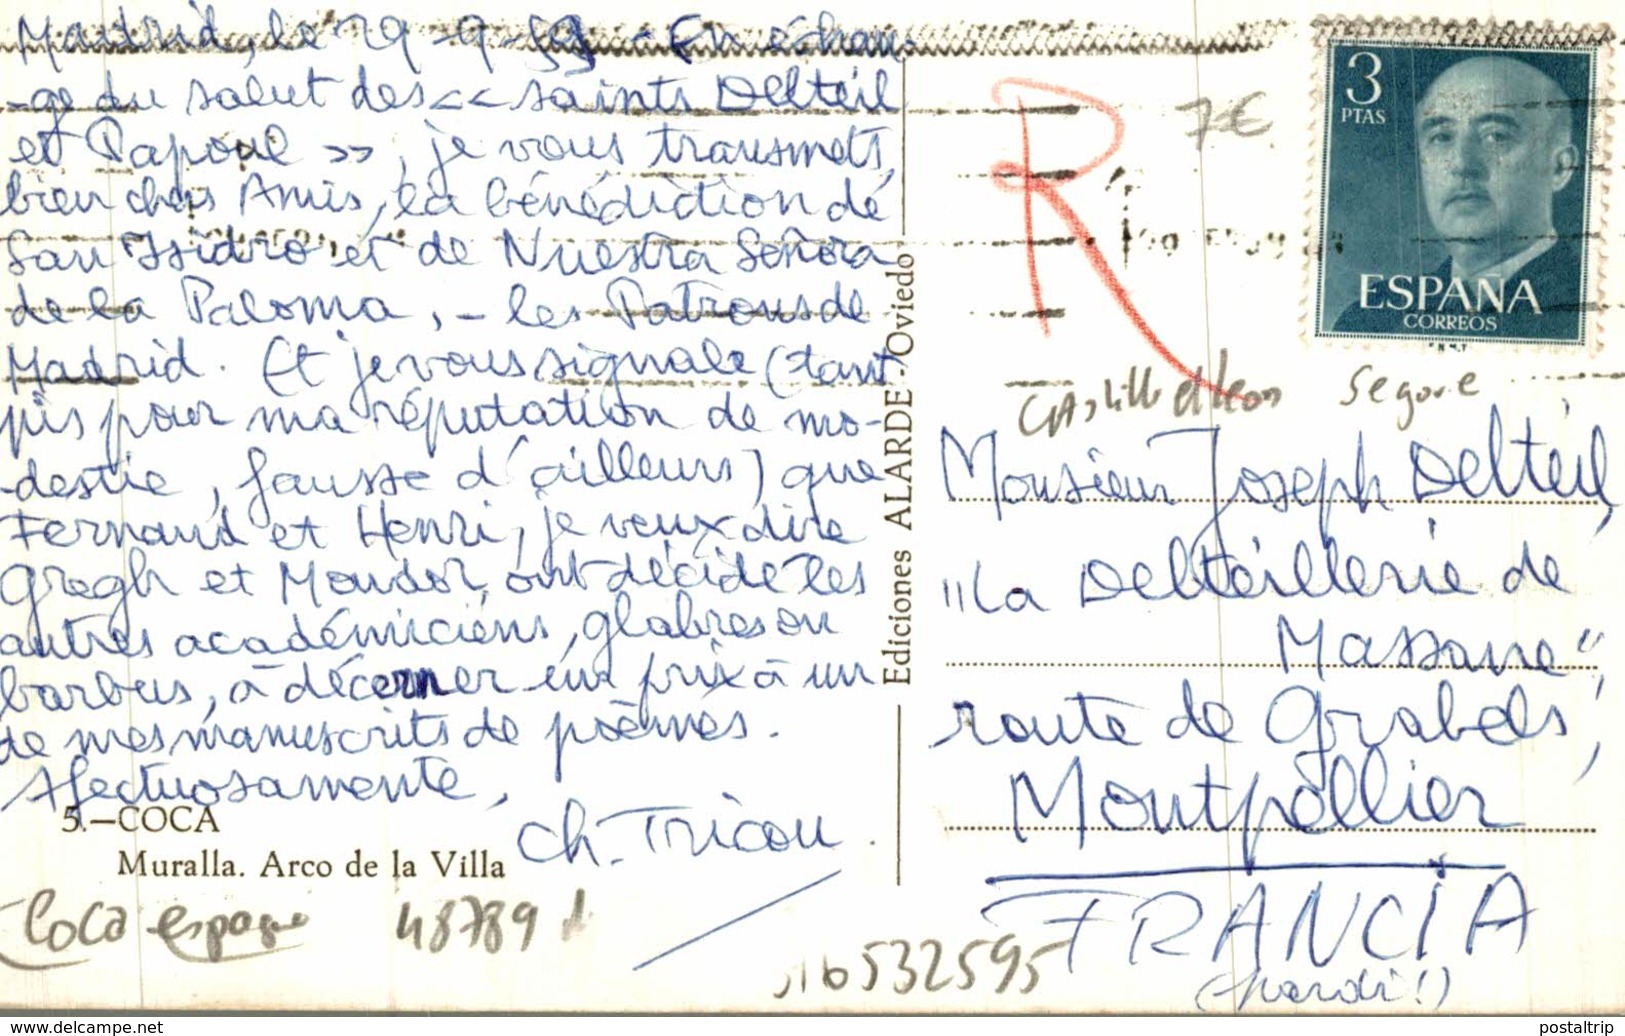 Madrid, le 29-9-59 - En échan-
-ge du salut des << saints Delteil
et Papoul >>, je vous transmets,
bien chers Amis, la bénédiction de
San Isidro et de Nuestra Señora
de la Paloma, - les Patrons de
Madrid. Et je vous signale (tant
pis pour ma réputation de mo-
-destie, fausse d'ailleurs) que
Fernand et Henri, je veux dire
Gregh et Mondor, ont décidé les
autres académiciens, glabres ou
barbus, à décerner un prix à un
de mes manuscrits de poèmes.
Afectuosamente,
Ch. Tricou.
5.—COCA
Muralla. Arco de la Villa
Coca espagne 48789
516532595
Ediciones ALARDE.-Oviedo
R
7€
3
PTAS
ESPAÑA
CORREOS
F.N.M.T
Castille et Leon Segovie
Monsieur Joseph Delteil,
"La Delteillerie de
Massane",
route de Grabels,
Montpellier
FRANCIA
(pardi!)
delcampe.net
postaltrip